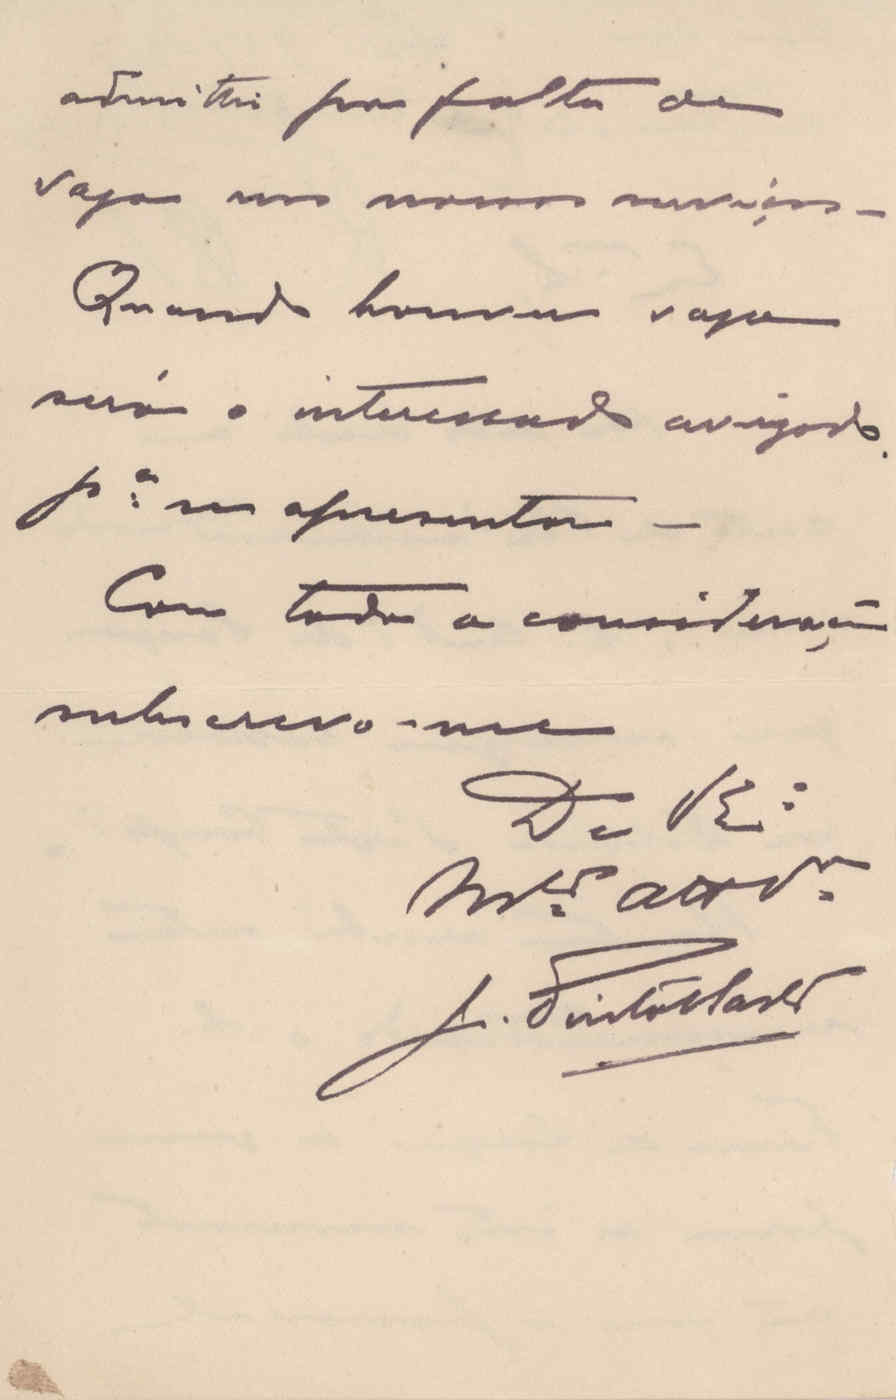 admitti por falta de
vaga nos nossos serviços -
Quando houver vaga
será o interessado avizado
p.ª se apresentar -
Com toda a consideração
subscrevo-me
De V. E.
M.to att. V.
J. Pinto